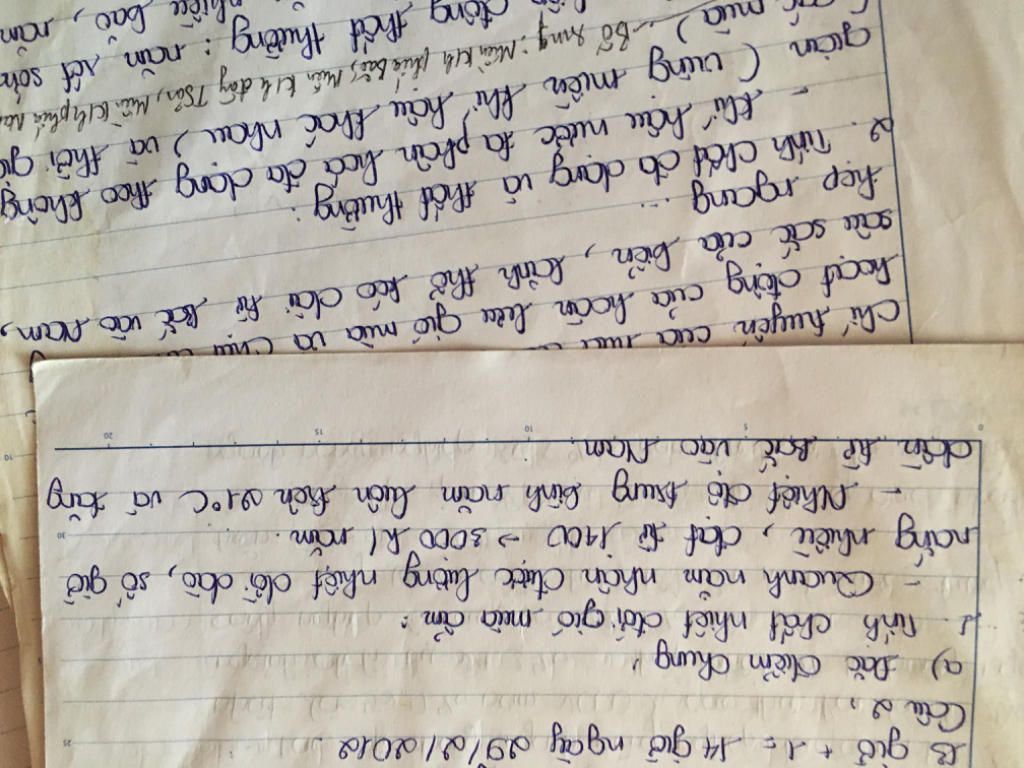 13 giờ + 1 = 14 giờ ngày 29/2/2012
Câu 2,
a) Đặc điểm chung
1. Tính chất nhiệt đới gió mùa ẩm:
- Quanh năm nhận được lượng nhiệt dồi dào, số giờ
nắng nhiều, đạt từ 1400 → 3000 h/ năm.
- Nhiệt độ trung bình năm luôn trên 21°C và tăng
dần từ Bắc vào Nam.
Chí tuyến của
hoạt động của hoàn lưu gió mùa và chịu
sâu sắc của biển, lãnh thổ kéo dài từ Bắc vào Nam,
hẹp ngang ...
2. Tính chất đa dạng và thất thường:
- Khí hậu nước ta phân hoá đa dạng theo không
gian (vùng miền khí hậu khác nhau) và thời gi
mùa)
Bổ sung: Miền kh phía bắc, Miền kh đông TSơn, Miền kh phía na
động thất thường: năm rét sớm
nhiều bão, năm